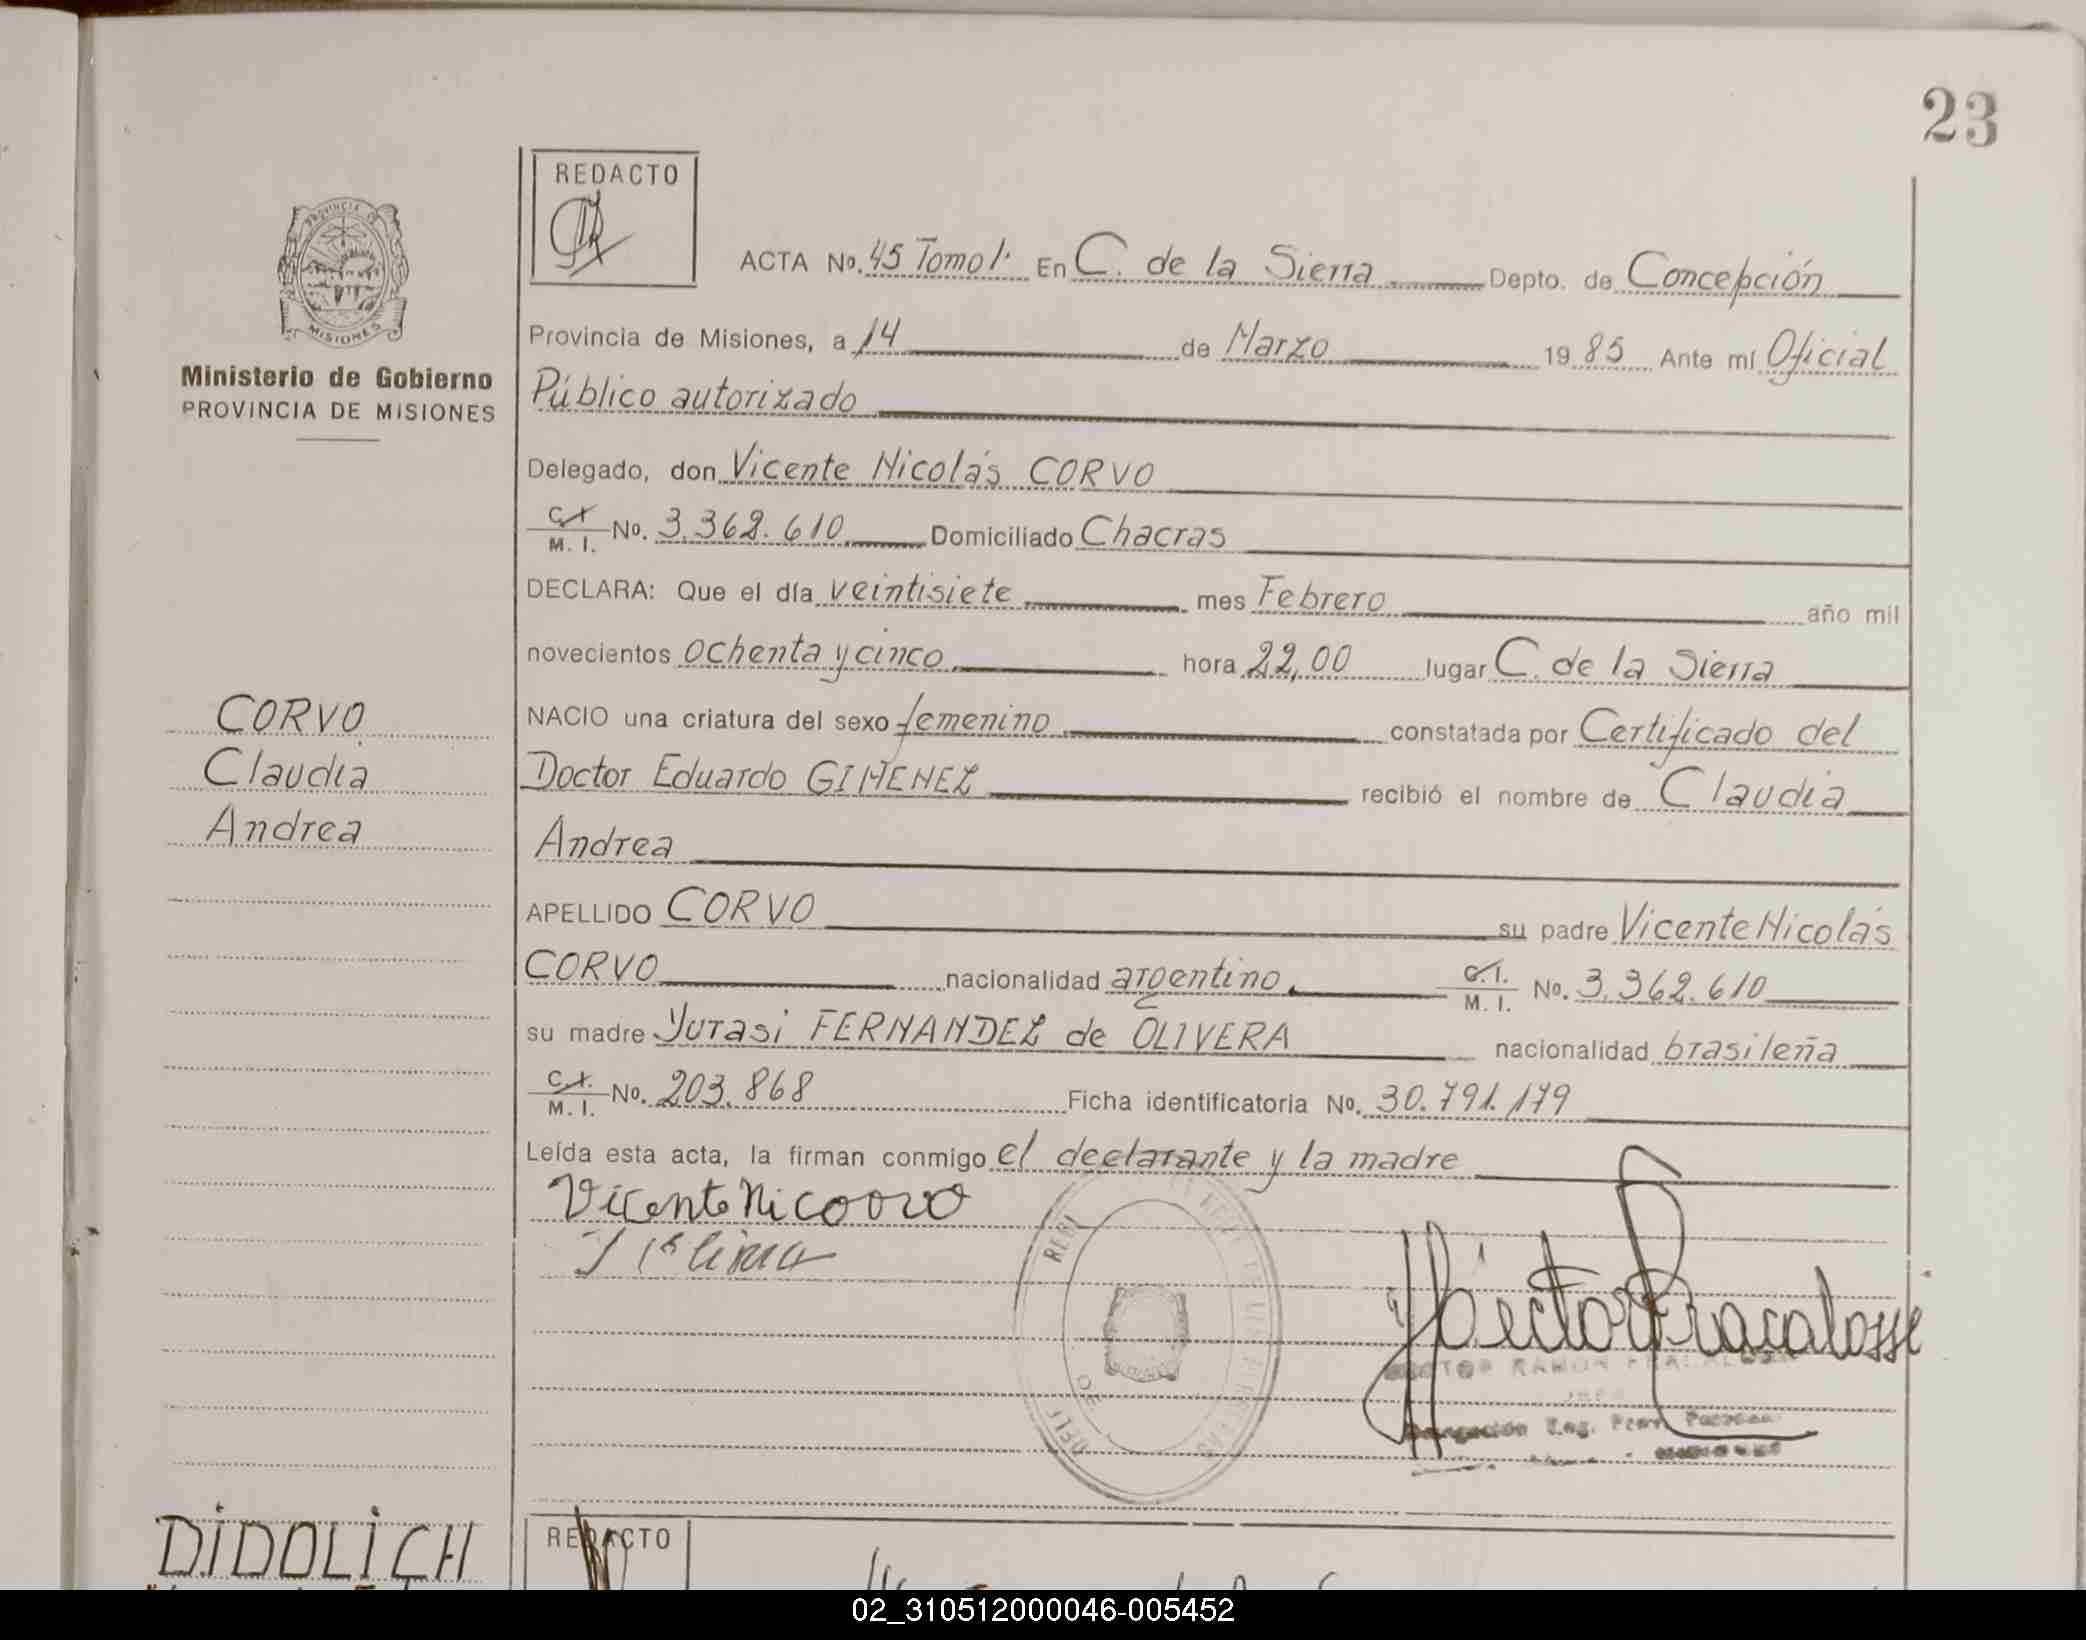 23
REDACTO
PROVINCIA DE
MISIONES
Ministerio de Gobierno
PROVINCIA DE MISIONES
ACTA No. 45 Tomo 1· En C. de la Sierra Depto. de Concepción
Provincia de Misiones, a 14 de Marzo 1985 Ante mí Oficial
Público autorizado
Delegado, don Vicente Nicolás CORVO
C.I. M. I. No. 3.362.610 Domiciliado Chacras
DECLARA: Que el día veintisiete mes Febrero año mil
novecientos ochenta y cinco hora 22,00 lugar C. de la Sierra
NACIO una criatura del sexo femenino constatada por Certificado del
Doctor Eduardo GIMENEZ recibió el nombre de Claudia
Andrea
APELLIDO CORVO su padre Vicente Nicolás
CORVO nacionalidad argentino. C.I. M. I. No. 3.362.610
su madre Yurasi FERNANDEZ de OLIVERA nacionalidad brasileña
C.I. M. I. No. 203.868 Ficha identificatoria No. 30.791.179
Leída esta acta, la firman conmigo el declarante y la madre
CORVO
Claudia
Andrea
Vicente Nicoorvo
HECTOR RAMON FRACALOSSI
JEFE
Delegación
DIDOLICH
REDACTO
02_310512000046-005452